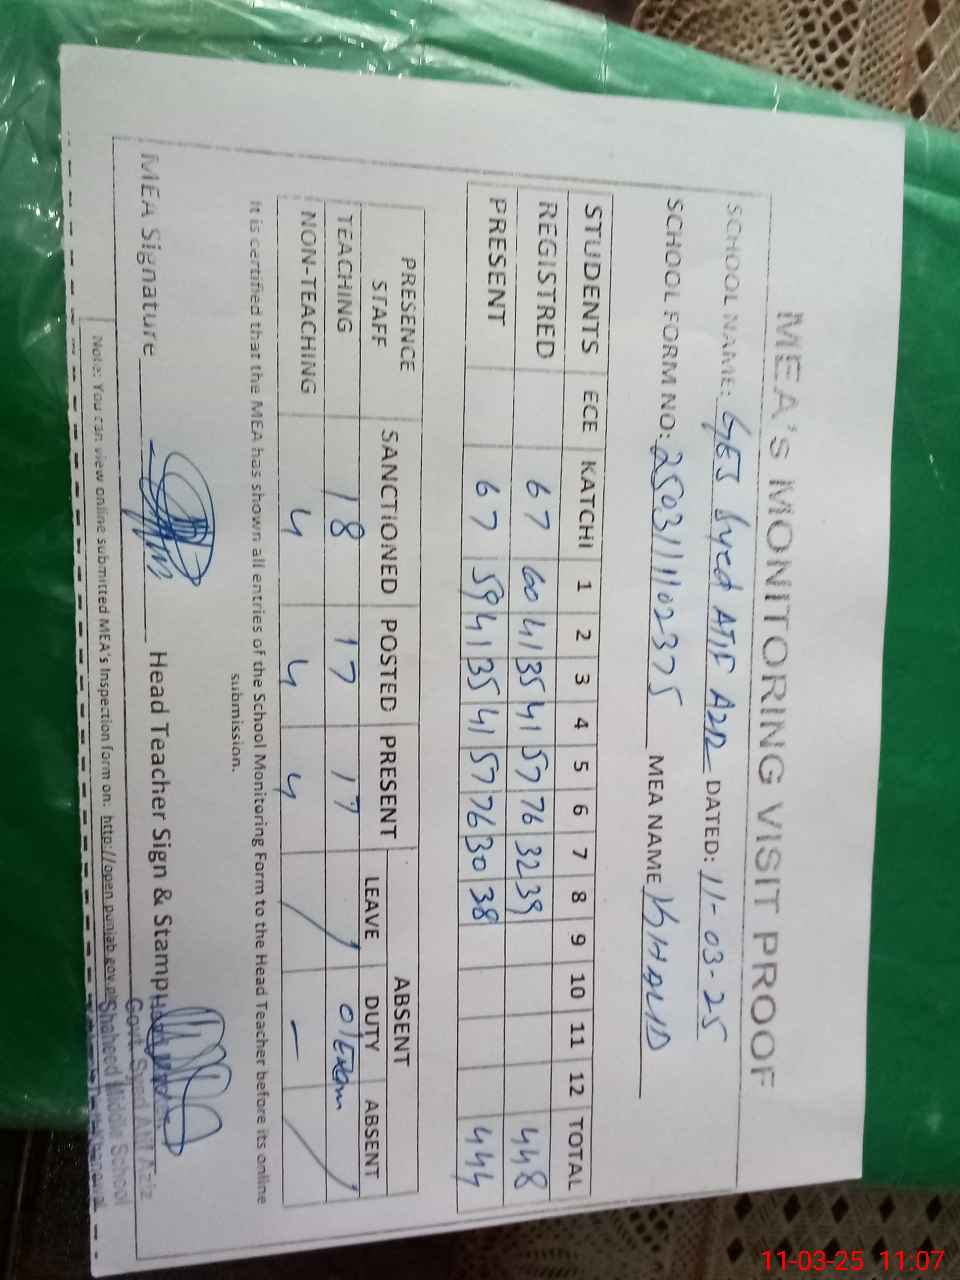 MEA'S MONITORING VISIT PROOF
SCHOOL NAME: GES Syed ATIF AZIZ DATED: 11-03-25
SCHOOL FORM NO: 250311102375 MEA NAME KHALID
STUDENTS ECE KATCHI 1 2 3 4 5 6 7 8 9 10 11 12 TOTAL
REGISTRED 67 60 41 35 41 57 76 32 39 448
PRESENT 67 59 41 35 41 57 76 30 38 444
PRESENCE STAFF SANCTIONED POSTED PRESENT ABSENT
LEAVE DUTY ABSENT
TEACHING 18 17 17 / 01 Exam /
NON-TEACHING 4 4 4 / — /
It is certified that the MEA has shown all entries of the School Monitoring Form to the Head Teacher before its online
submission.
MEA Signature Head Teacher Sign & Stamp
Govt. Syed Atif Aziz
Shaheed Middle School
Note: You can view online submitted MEA's Inspection form on: http://open.punjab.gov.pk
11-03-25 11:07